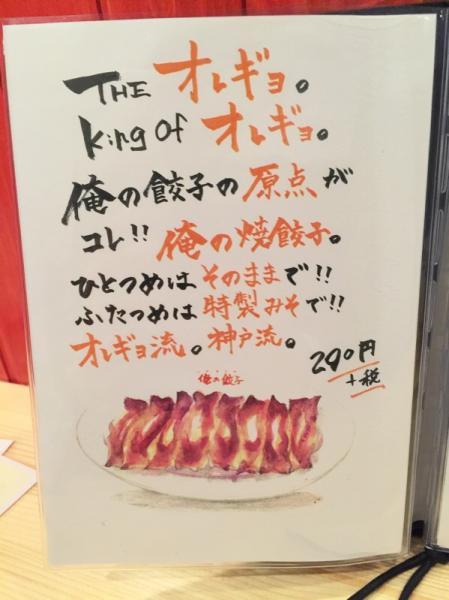 THE オレギョ。
King of オレギョ。
俺の餃子の原点が
コレ!! 俺の焼餃子。
ひとつめはそのままで!!
ふたつめは特製みそで!!
オレギョ流。神戸流。
290円
+税
俺の餃子